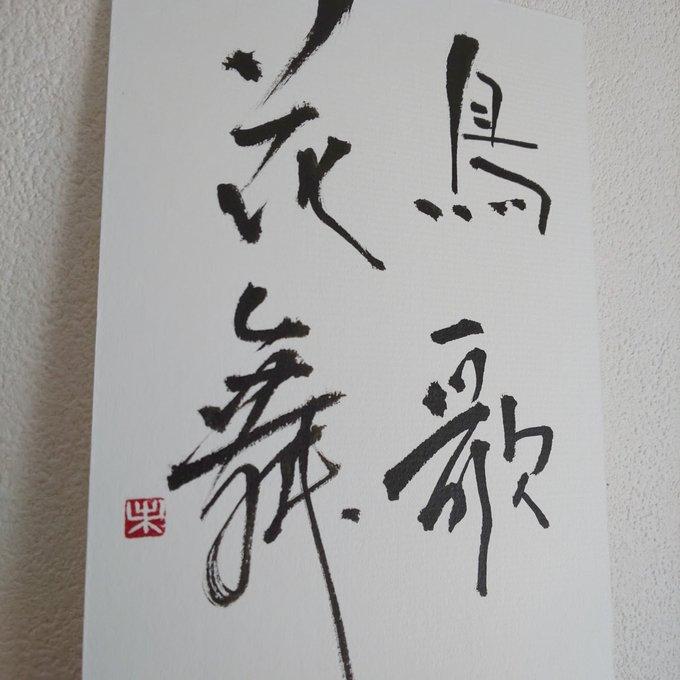 鳥歌
花舞